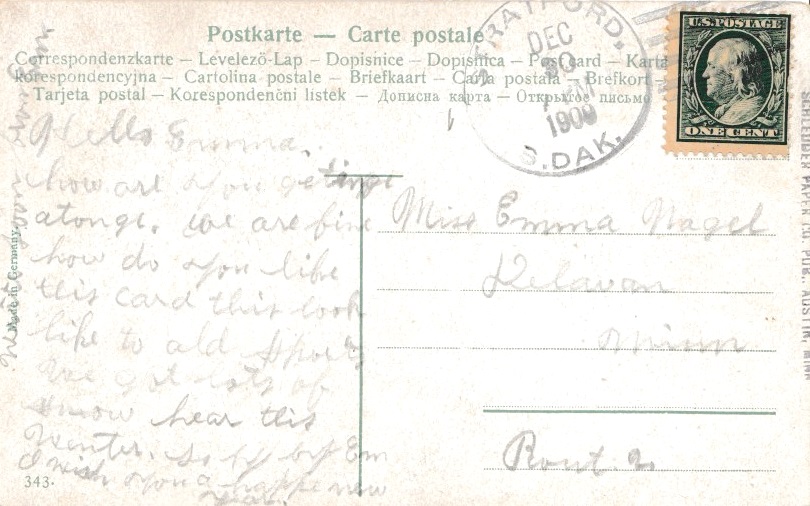 Postkarte — Carte postale
Correspondenzkarte – Levelező-Lap – Dopisnice – Dopisnica – Post card – Karta
korespondencyjna – Cartolina postale – Briefkaart – Carta postala – Brefkort –
Tarjeta postal – Korespondenční listek – Дописна карта – Открытое письмо
STRATFORD,
DEC
1909
S.DAK.
U.S. POSTAGE
ONE CENT
Hello Emma.
how are you getting
atonge. we are fine
how do you like
this card this look
like to old sports
we got lots of
snow hear this
Winter. So by by Em
I wish you a happe new
year.
Miss Emma Nagel
Delavan
Minn
Rout. 2
Made in Germany.
343.
PUBL. AUSTIN, MINN